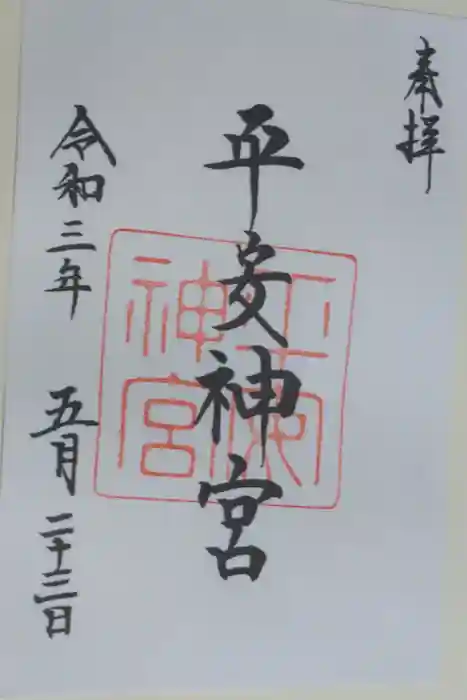 奉拝
平安神宮
令和三年 五月二十三日
平安神宮